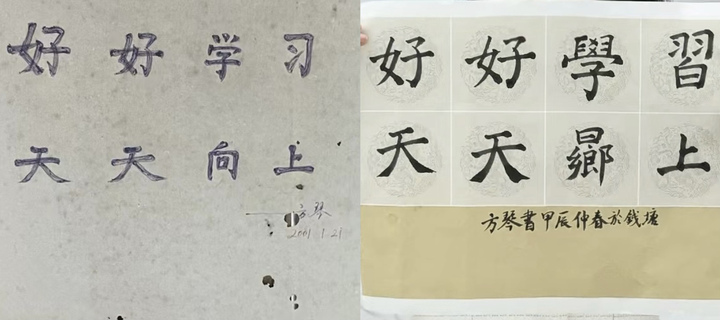 好好学习
天天向上
方琴
2001.1.21
好好學習
天天曏上
方琴書甲辰仲春於錢塘